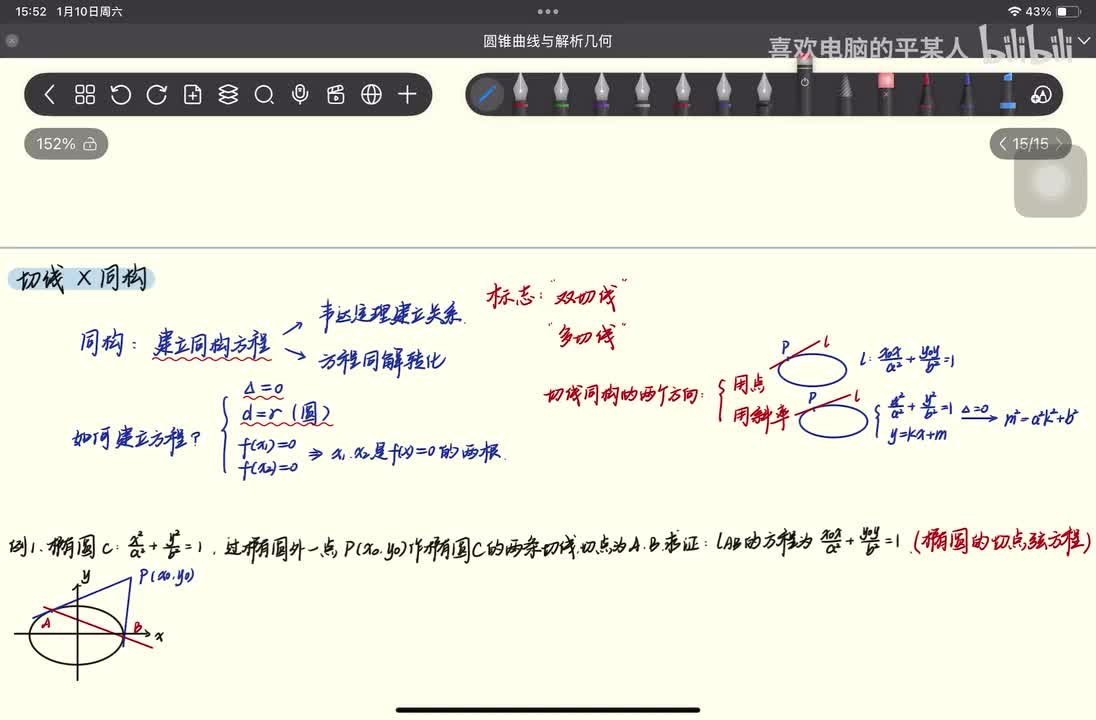 15:52 1月10日周六
43%
圆锥曲线与解析几何
喜欢电脑的平某人 bilibili
152%
15/15
切线 × 同构
同构: 建立同构方程
韦达定理建立关系.
方程同解转化
标志: "双切线"
"多切线"
如何建立方程?
Δ=0
d=r (圆)
f(x₁)=0
f(x₂)=0
⇒ x₁.x₂是f(x)=0的两根.
切线同构的两个方向:
用点
P l
l: x₀x/a² + y₀y/b² = 1
用斜率
P l
x²/a² + y²/b² = 1
y=kx+m
Δ=0 → m²=a²k²+b²
例1. 椭圆C: x²/a² + y²/b² = 1, 过椭圆外一点P(x₀.y₀)作椭圆C的两条切线,切点为A.B.求证: lAB的方程为 x₀x/a² + y₀y/b² = 1 (椭圆的切点弦方程)
y
P(x₀.y₀)
A
B
x